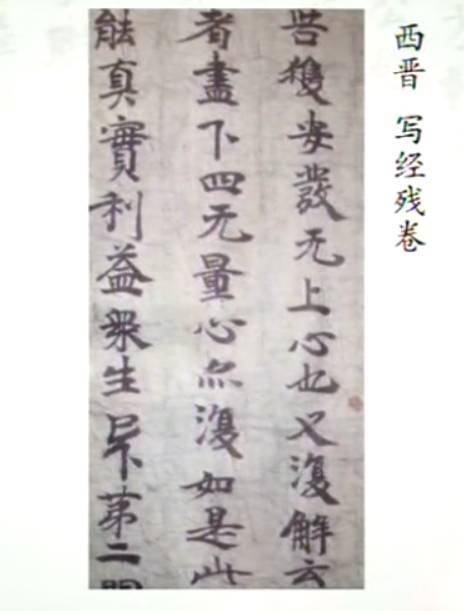 西晋 写经残卷
獲安發无上心也又復解云
者盡下四无量心亦復如是此
能真實利益衆生已下第二